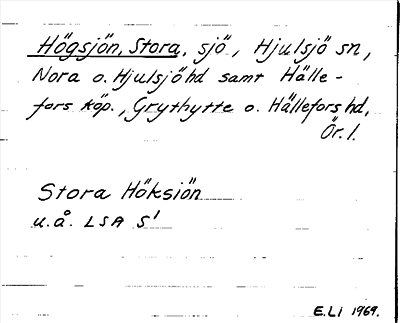 Högsjön, Stora, sjö, Hjulsjö sn,
Nora o. Hjulsjö hd samt Hälle-
fors köp., Grythytte o. Hällefors hd,
Ör. l.
Stora Höksiön
u.å. LSA S¹
E.Li 1969.